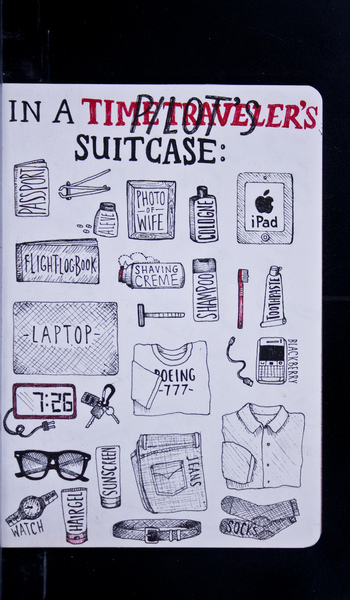 IN A TIME TRAVELER'S
PILOT'S
SUITCASE:
PASSPORT
ALEVE
PHOTO
OF
WIFE
COLOGNE
iPad
FLIGHTLOGBOOK
SHAVING
CREME
SHAMPOO
TOOTHPASTE
-LAPTOP-
BOEING
-777-
BLACKBERRY
7:26
SUNSCREEN
JEANS
WATCH
HAIRGEL
SOCKS